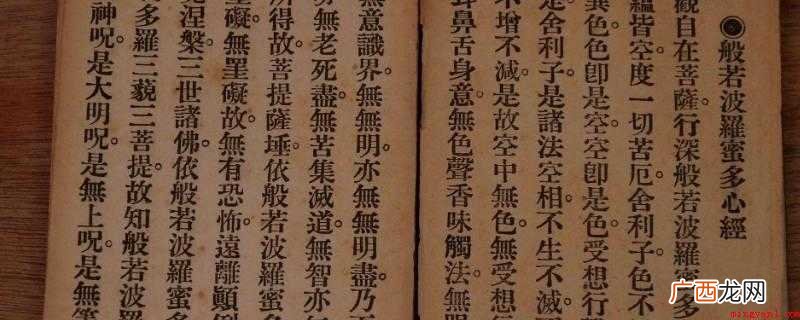 般若波羅蜜多心經
觀自在菩薩。行深般若波羅蜜多
蘊皆空。度一切苦厄。舍利子。色不
異色。色即是空。空即是色。受想行
是。舍利子。是諸法空相。不生不滅。
不增不減。是故空中無色。無受想行
耳鼻舌身意。無色聲香味觸法。無眼
無意識界。無無明。亦無無明盡。乃至
無老死盡。無苦集滅道。無智亦無
所得故。菩提薩埵。依般若波羅蜜多
罣礙。無罣礙故。無有恐怖。遠離顛倒
竟涅槃。三世諸佛。依般若波羅蜜多
多羅三藐三菩提。故知般若波羅蜜多
神呪。是大明呪。是無上呪。是無等
广西龙网